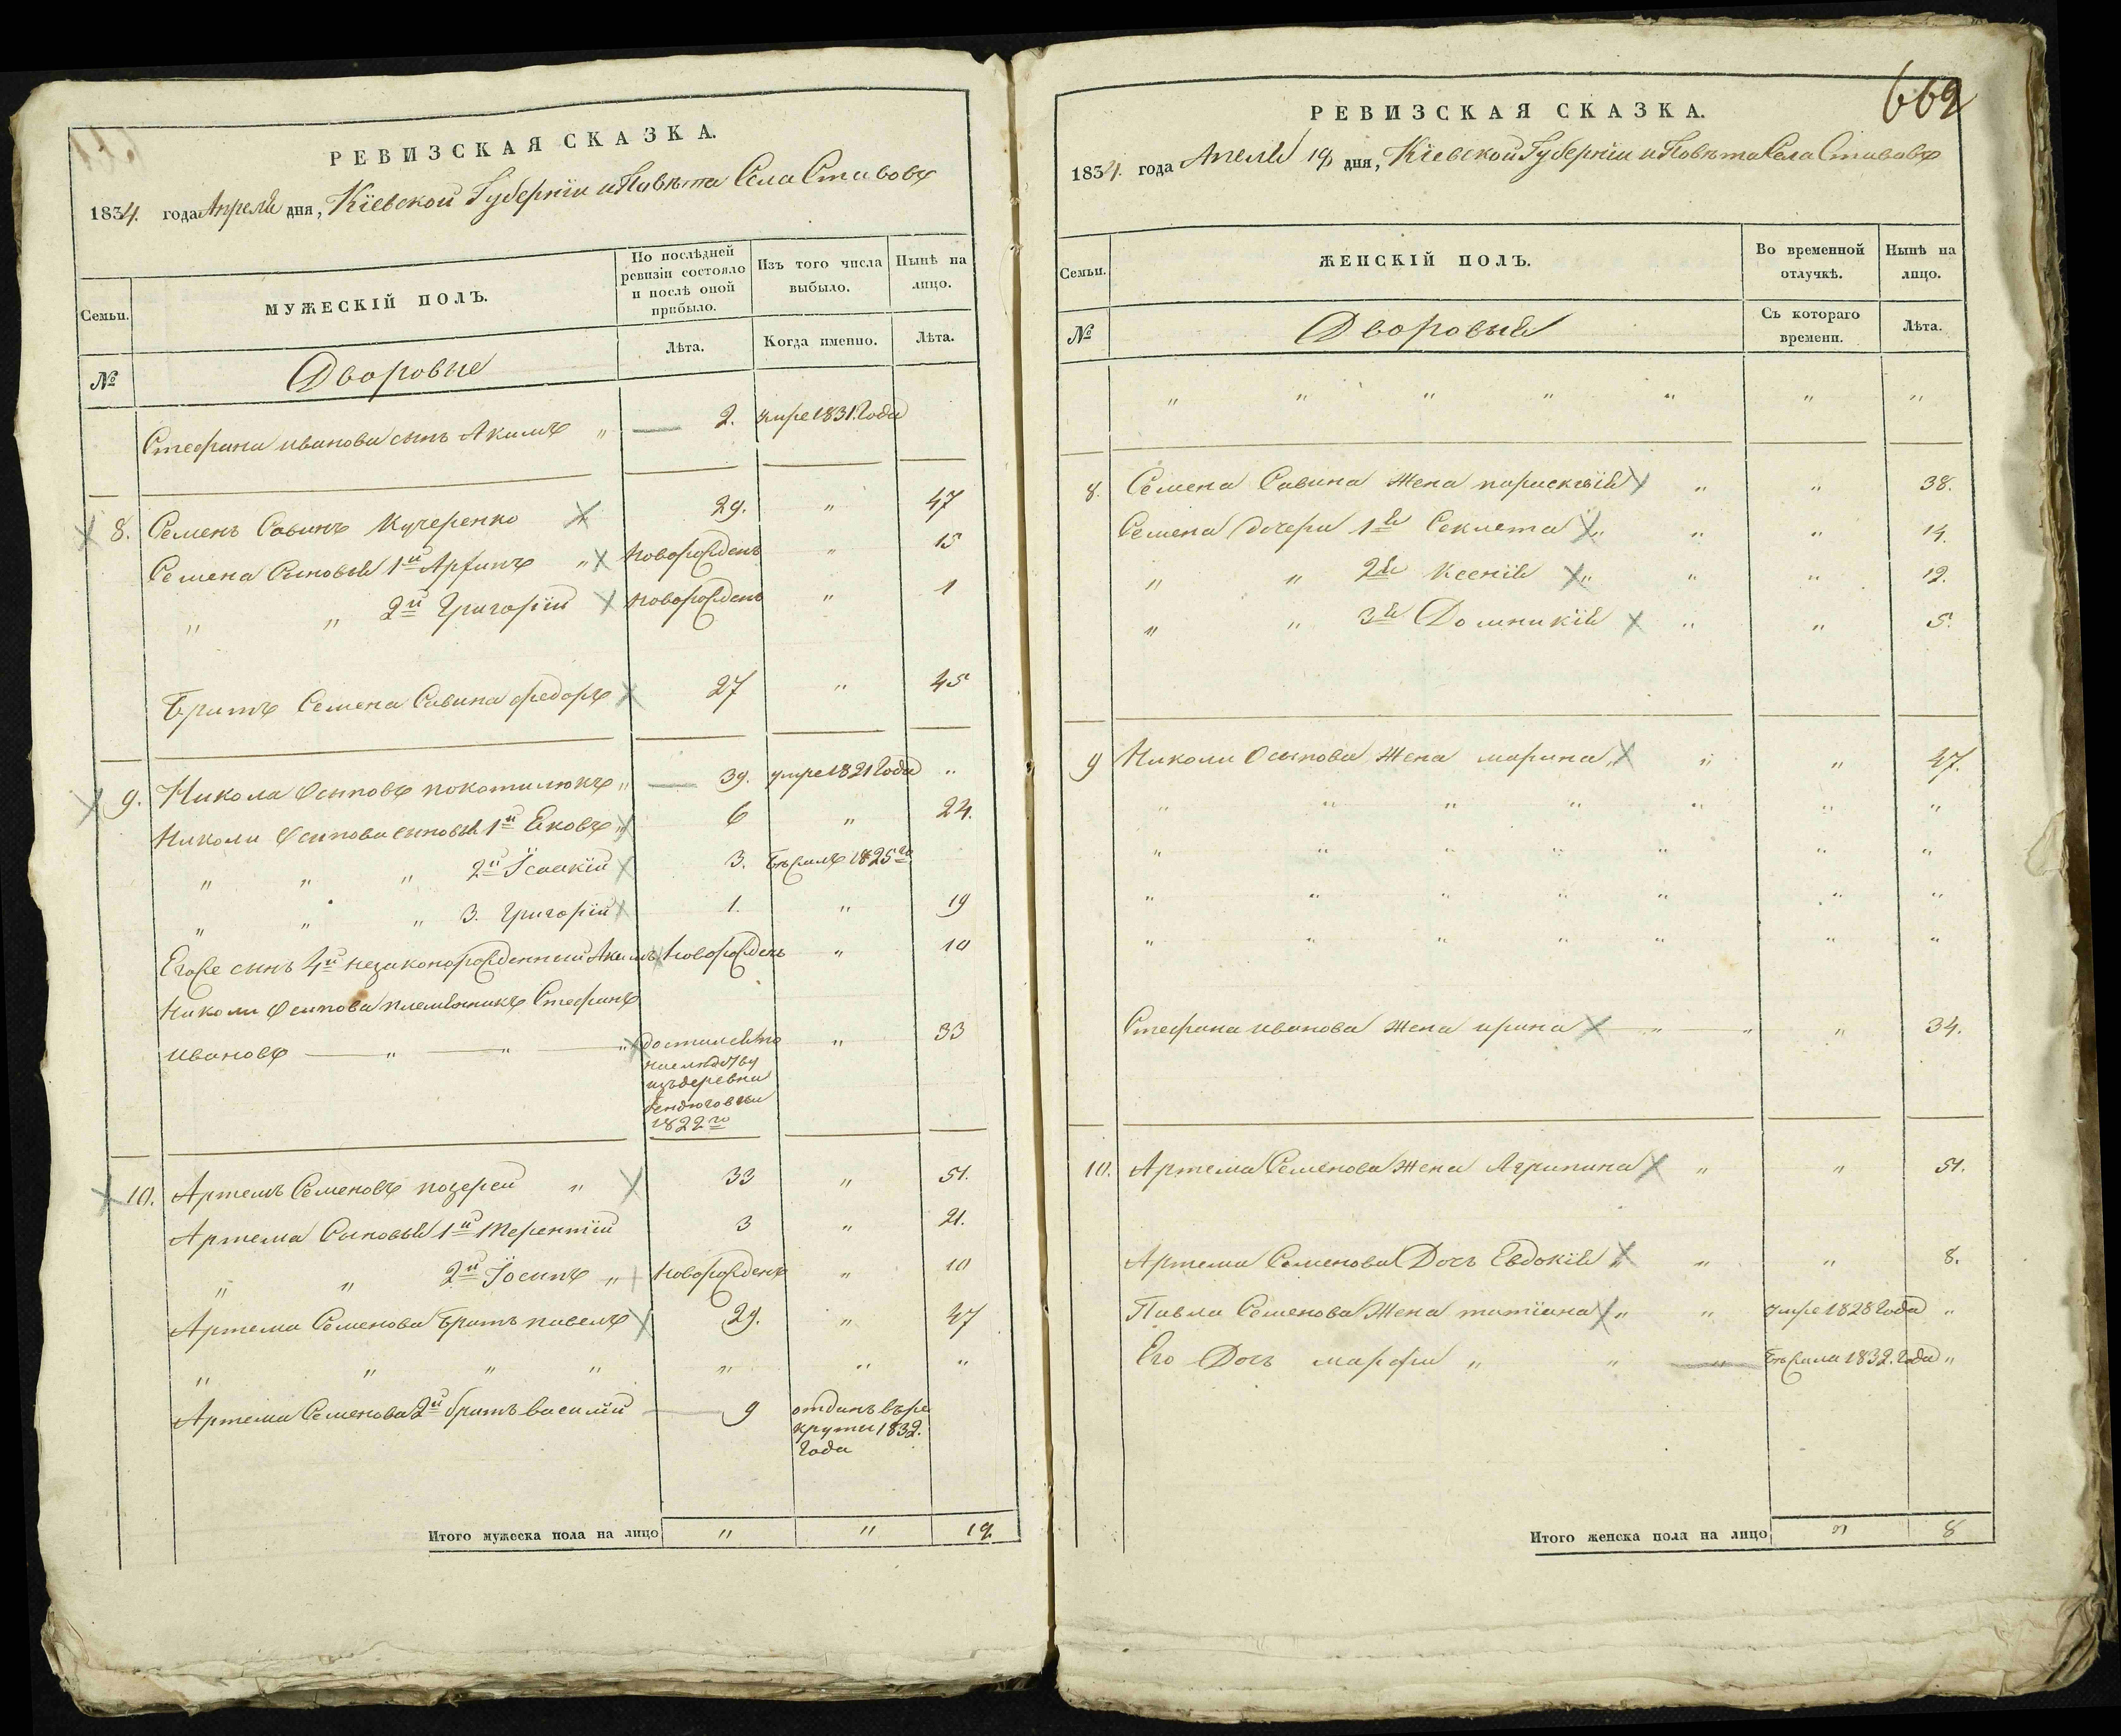 РЕВИЗСКАЯ СКАЗКА.
1834. года Апреля дня, Кіевской Губерніи и Повѣта Села Ставовъ
Семьи.
МУЖЕСКІЙ ПОЛЪ.
По послѣдней ревизіи состояло и послѣ оной прибыло.
Изъ того числа выбыло.
Нынѣ на лицо.
№
Дворовые
Лѣта.
Когда именно.
Лѣта.
Стефана иванова сынъ Акимъ " 2. умре 1831. Года
8. Семенъ Савинъ Кучеренко 29. " 47
Семена Сыновья 1й " новорожденъ " 15
" " 2й Григорій новорожденъ " 1
Братъ Семена Савина федоръ 27 " 45
9. Никола Осиповъ покотилюкъ " 39. умре 1821 Года "
Николи Осипова сыновья 1й Яковъ " 6 " 24.
" " " 2й Ісаакій 3. Бѣжалъ 1825го
" " " 3. Григорій 1. " 19
Егоже сынъ 4й незаконорожденный Акимъ новорожденъ " 10
Николи Осипова племѣнникъ Стефанъ
ивановъ " " " " 33
изъ деревни
1822го
10. Артемъ Семеновъ " 33 " 51.
Артема Сыновья 1й Терентій 3 " 21.
" " 2й Іосипъ " новорожденъ " 10
Артема Семенова братъ павелъ 29. " 47
" " " " " " "
Артема Семенова 2й братъ василій 9 отданъ въ ре
круты 1832.
Года
Итого мужеска пола на лицо " "
РЕВИЗСКАЯ СКАЗКА.
669
1834. года Апеля 19 дня, Кіевской Губерніи и Повѣта Села Ставовъ
Семьи.
ЖЕНСКІЙ ПОЛЪ.
Во временной отлучкѣ.
Нынѣ на лицо.
№
Дворовыя
Съ котораго времени.
Лѣта.
" " " " " " "
8. Семена Савина Жена параскевія " " 38.
Семена дочери 1я Секлета " " " 14.
" " 2я Ксенія " " " 12.
" " 3я Домникія " " 5.
9 Николи Осипова Жена марина " " " 47.
" " " " " " "
" " " " " " "
" " " " " " "
" " " " " " "
Стефана иванова Жена ирина " " " 34.
10. Артема Семенова Жена Агрипина " " 51.
Артема Семенова Дочь Евдокія " " " 8.
Павла Семенова Жена татіана " " умре 1828 Года "
Его Дочь марфа " " " Бѣжала 1832. Года "
Итого женска пола на лицо " 8